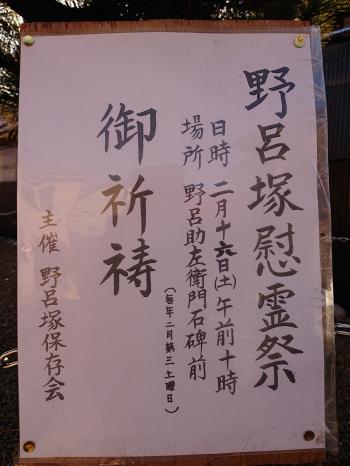 野呂塚慰霊祭
日時 二月十六日(土)午前十時
場所 野呂助左衛門石碑前
(毎年二月第三土曜日)
御祈祷
主催 野呂塚保存会